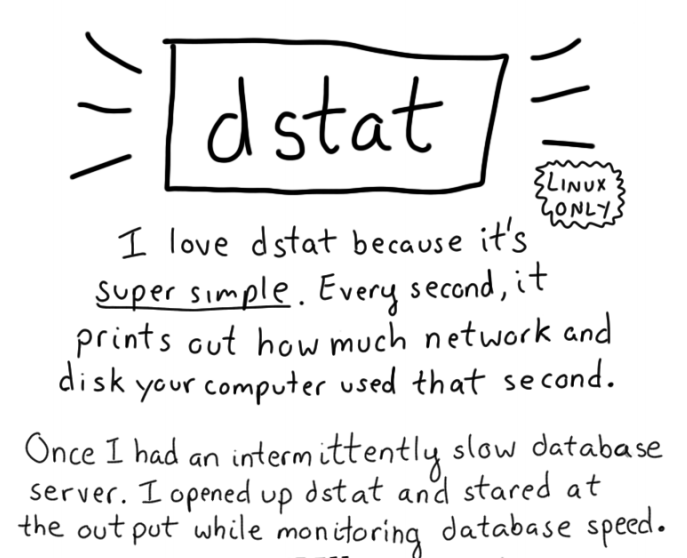 dstat
LINUX
ONLY
I love dstat because it's
super simple. Every second, it
prints out how much network and
disk your computer used that second.
Once I had an intermittently slow database
server. I opened up dstat and stared at
the output while monitoring database speed.